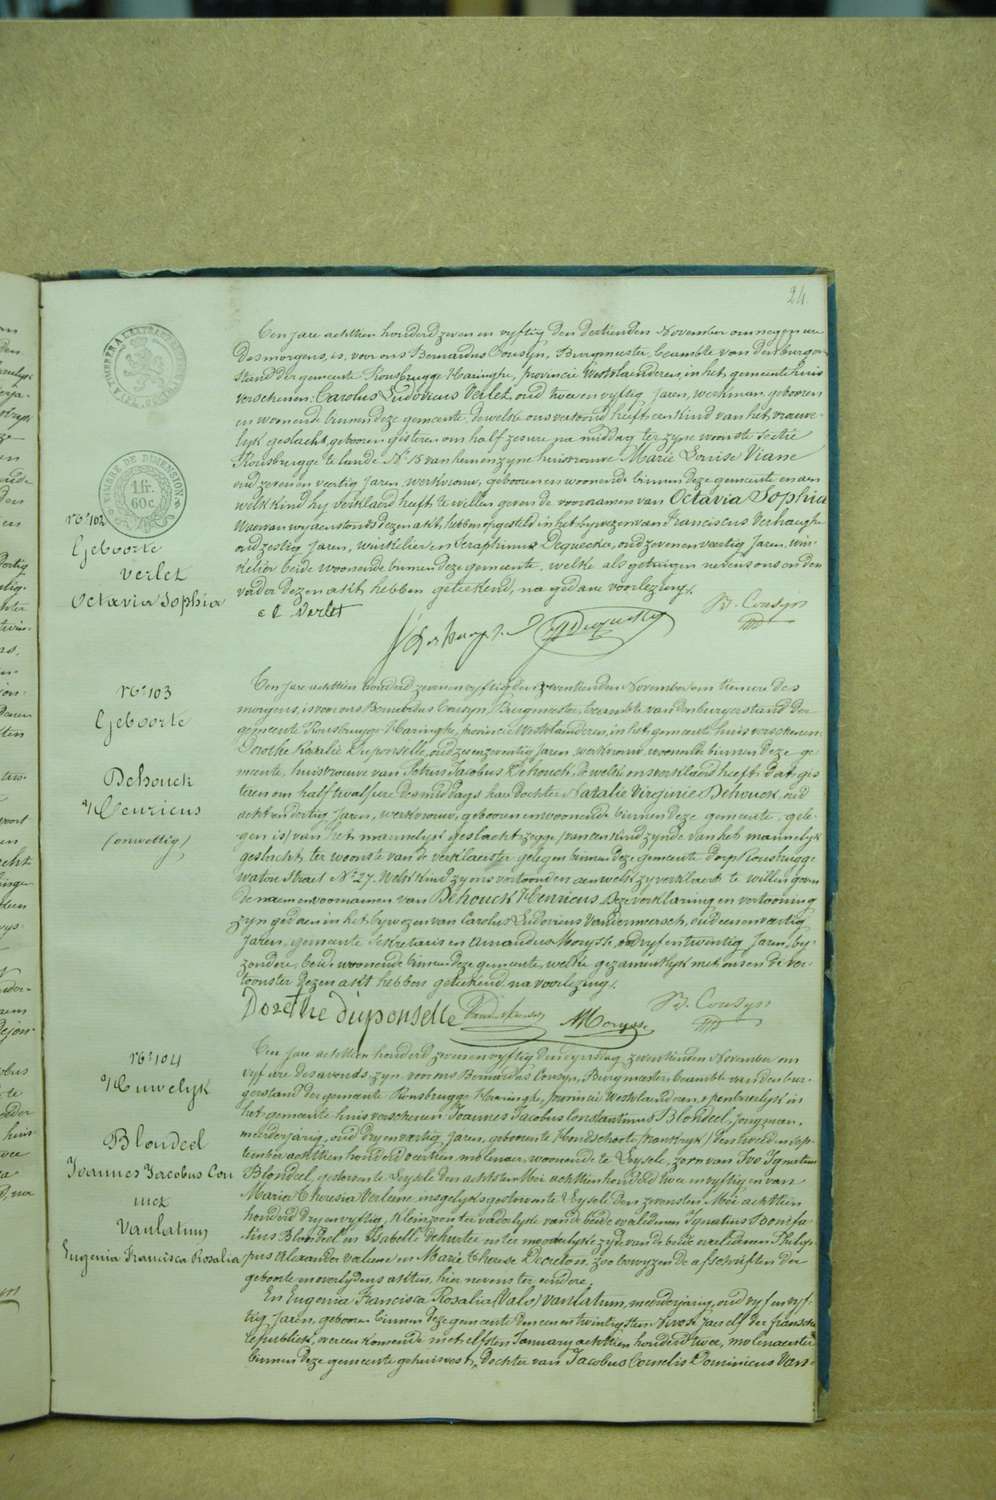 24.
TIMBRE DE DIMENSION
1 fr.
60 c.
Nr 102
Geboorte
Verlet
Octavia Sophia
Een jare achttien honderd zeven en vyftig den dertienden November om negen ure
des morgens, is, voor ons Bernardus Cousyn, Burgmeester, beambte van den burger
stand der gemeente Rousbrugge Haringhe, provincie Westvlaenderen, in het gemeente huis
verschenen: Carolus Ludovicus Verlet, oud twee en vyftig jaren, werkman, geboren
en wonende binnen deze gemeente, dewelke ons vertoond heeft een kind van het vrouwe-
lyk geslacht, geboren gisteren om half zes ure na middag, ter zyne woonste sectie
Rousbrugge te lande Nr 18 van hem en zyne huisvrouw Marie Louise Viane
oud zeven en veertig jaren, werkvrouw, geboren en woonende binnen deze gemeente en aen
welk kind hy verklaerd heeft te willen geven de voornamen van Octavia Sophia
Waervan wy aenstonds dezen akt hebben opgesteld in het bywezen van Franciscus Verhaeghe
oud zestig jaren, winkelier en Seraphinus Dequecker, oud zeven en veertig jaren, win-
kelier beide woonende binnen deze gemeente, welke als getuigen nevens ons en den
vader dezen akt hebben geteekend, na gedane voorlezing.
C L Verlet
B. Cousyn
Nr 103
Geboorte
Dehouck
Henricus
(onwettig)
Een jare achttien honderd zeven en vyftig den zeventienden November om tien ure des
morgens, is voor ons Bernardus Cousyn, Burgmeester, beambte van den burgerstand der
gemeente Rousbrugge Haringhe, provincie Westvlaanderen, in het gemeente huis verschenen:
Dorothe Rosalie Dieponselle, oud zes en zeventig jaren, werkvrouw, woonende binnen deze ge-
meente, huisvrouwe van Petrus Jacobus Dehouck, dewelke ons verklaerd heeft dat gis-
teren om half twalf ure des middags hare dochter Natalie Virginie Dehouck, oud
acht en dertig jaren, werkvrouw, geboren en woonende binnen deze gemeente, gele-
gen is van het mannelyk geslacht, zegge, van een kind zynde van het mannelyk
geslacht, ter woonste van de verklaerster gelegen binnen deze gemeente dorp Rousbrugge
Watou straet Nr 27. Welk kind zy ons vertoonden aen welk zy verklaert te willen geven
de naem en voornamen van Dehouck Henricus. Deze verklaring en vertooning
zyn gedaen in het bywezen van Carolus Ludovicus Vandermeersch, oud een en veertig
jaren, gemeente sekretaris en Amandus Moryss, oud vyf en twintig jaren, by-
zondere, beide woonende binnen deze gemeente, welke gezamentlyk met ons en de ver-
toonster dezen akt hebben geteekend, na voorlezing.
Dorethe dieponselle
A Moryss
B. Cousyn
Nr 104
Huwelyk
Blondeel
Joannes Jacobus Con
met
Vanlatum
Eugenia Francisca Rosalia
Een jare achttien honderd zeven en vyftig den dynsdag, zeventienden November om
vyf ure des avonds, zyn voor ons Bernardus Cousyn, Burgmeester, beambte van den bur-
gerstand der gemeente Rousbrugge Haringhe, provincie Westvlaanderen, openbaerlyk in
het gemeente huis verschenen Joannes Jacobus Constantinus Blondeel, jongman,
meerderjarig, oud dry en veertig jaren, geboren te Hondschoote (Frankryk) den tweeden Sep-
tember achttien honderd veertien, molenaer, woonende te Leysele, zoon van Ivo Ignatius
Blondeel, gestorven te Leysele den achtsten Mei achttien honderd twee en vyftig en van
Maria Theresia Verlaine insgelyks gestorven te Leysele den zevensten Mei achttien
honderd dry en vyftig, kleinzoon ter vaderlyke van de beide overledenen Ignatius Bonifa-
tius Blondeel en Isabelle Dehurtre en ter moederlyke zyde van de beide overledenen Philip-
pus Alexander Valaene en Marie Therese Decreton, zoo bewyzen de afschriften der
geboorte en overlydens akten, hier nevens ter andere.
En Eugenia Francisca Rosalia (Valo) Vanlatum, meerderjarig, oud vyf en vyf-
tig jaren, geboren binnen deze gemeente den een en twintigsten Nivose jaer elf der fransche
republiek, overeenkomende met elfsten January achttien honderd twee, molenaerster
binnen deze gemeente gehuisvest, dochter van Jacobus Cornelis Dominicus Van-